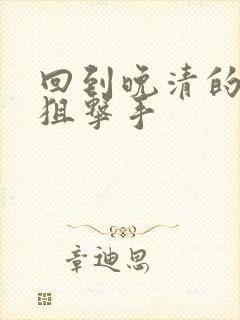 回到晚清的
狙击手
章迪思